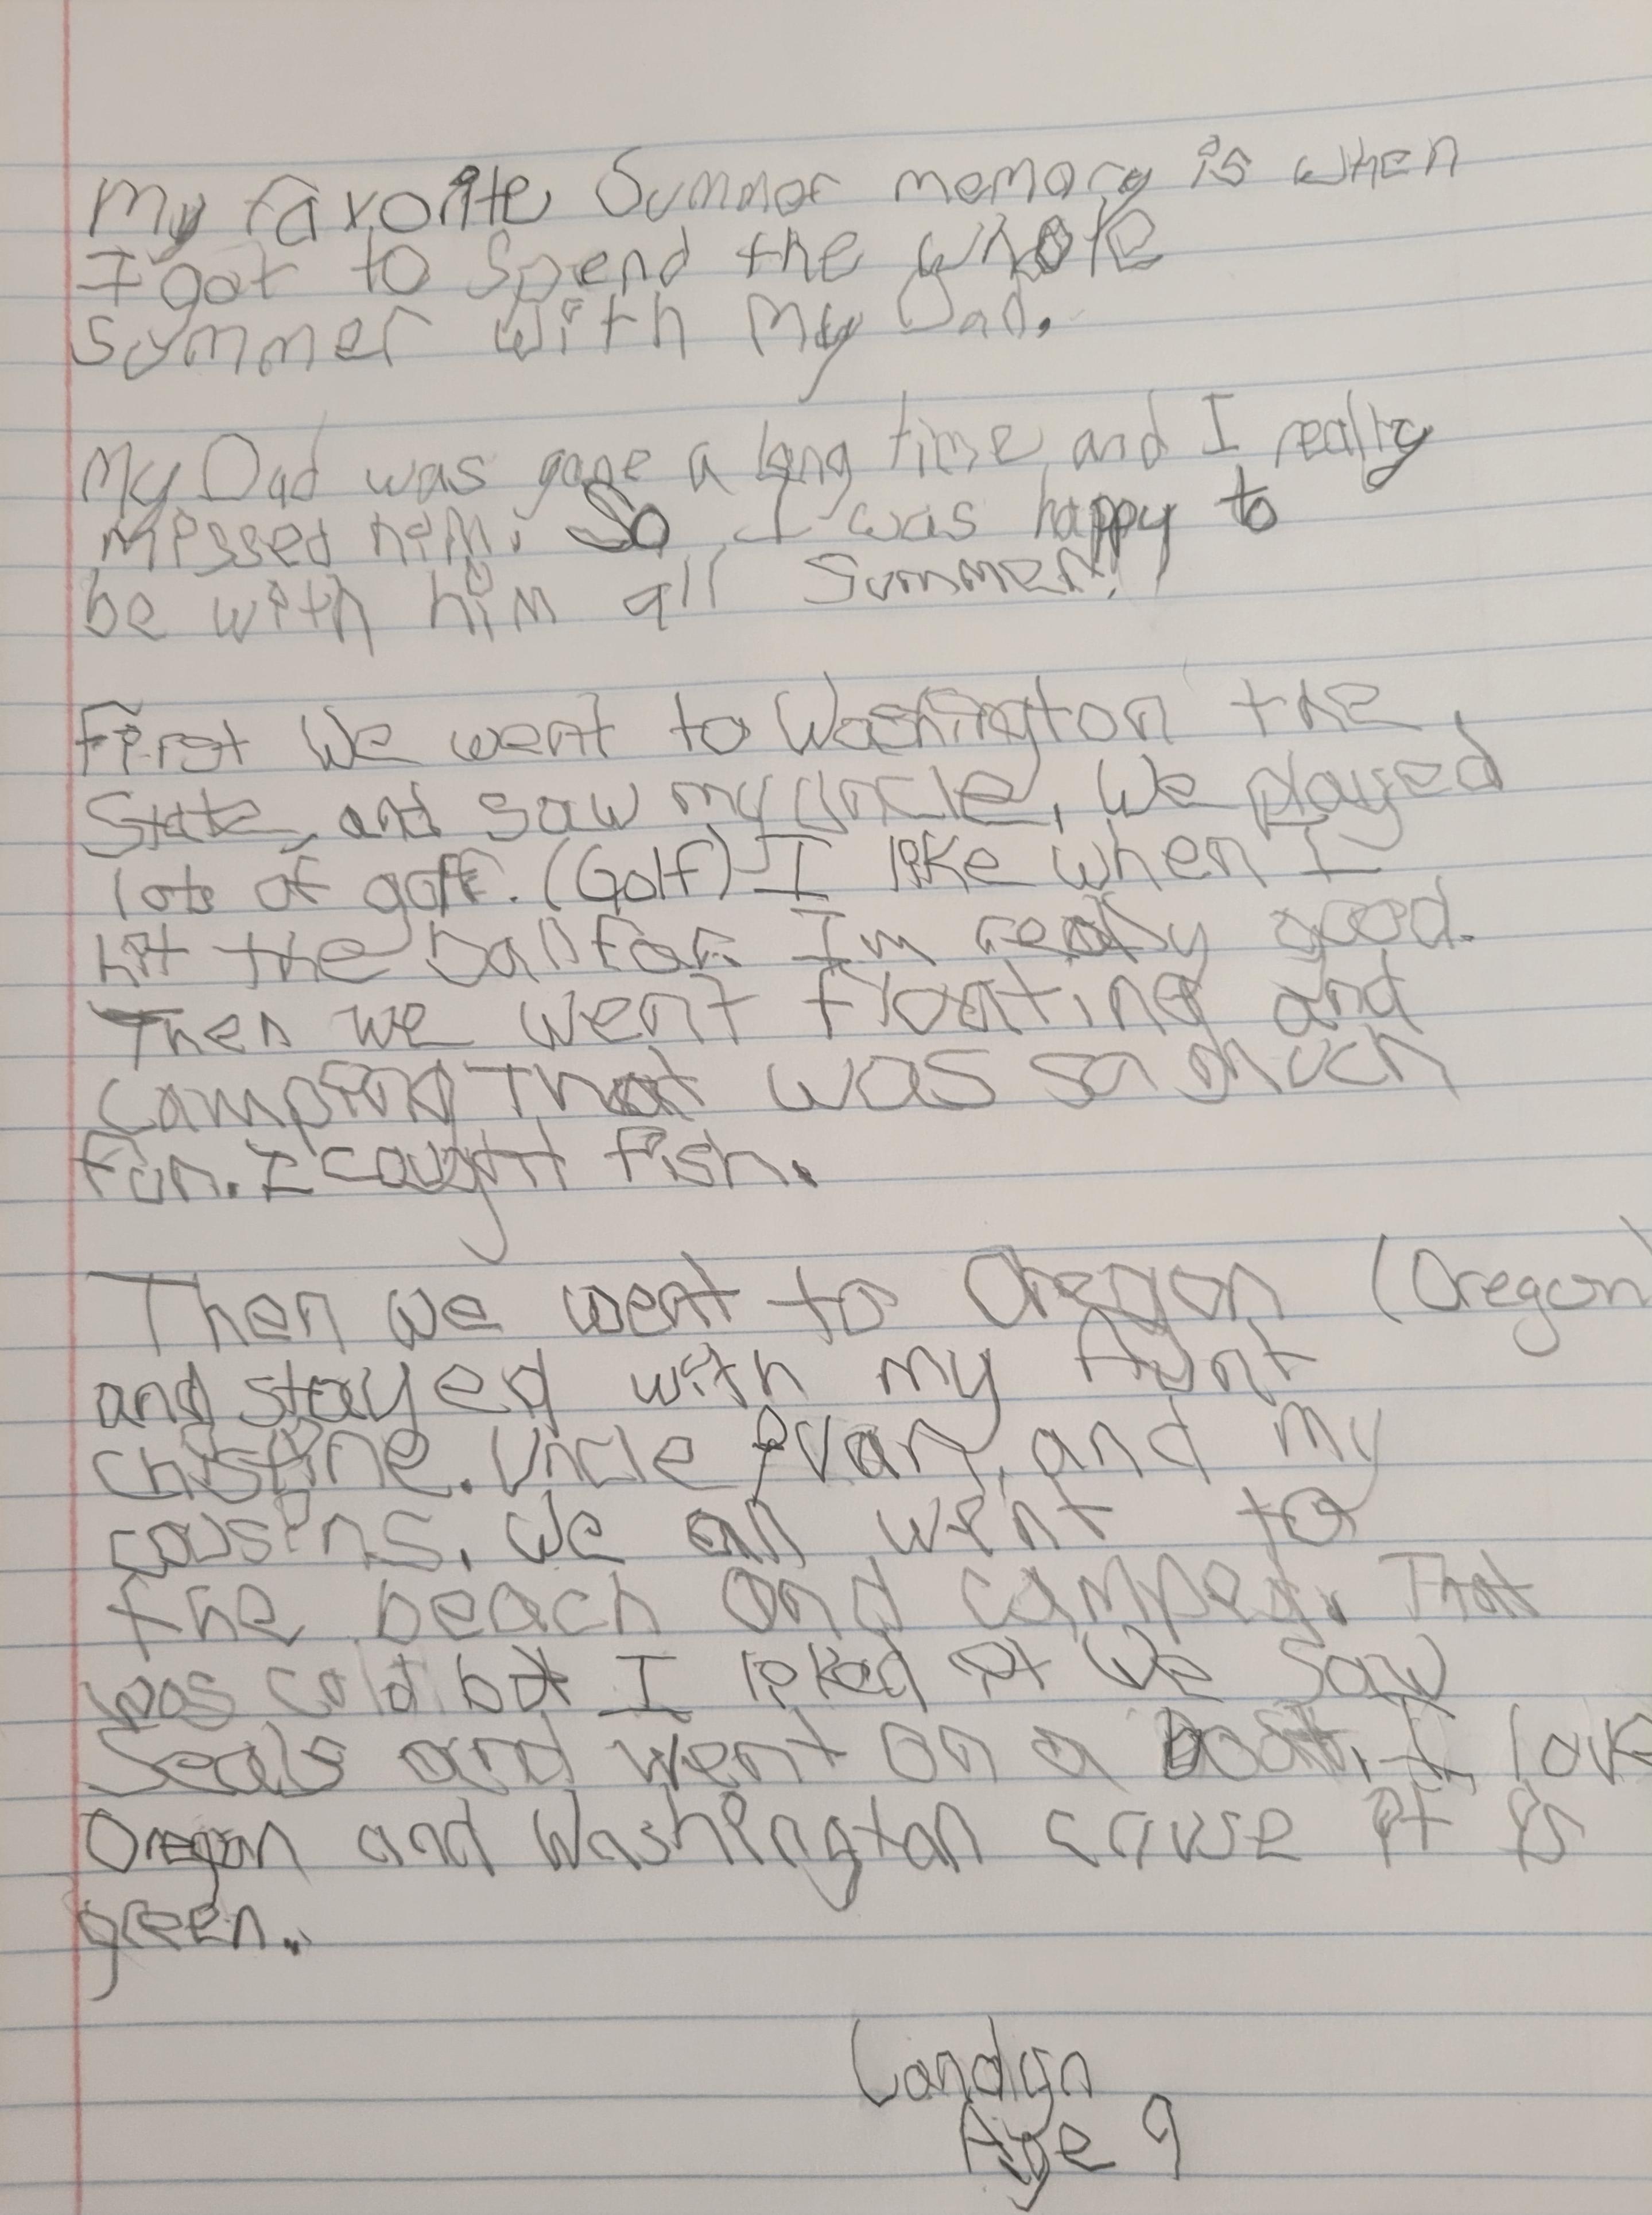 My favorite Summer memory is when
I got to spend the whole
summer with My Dad.
My Dad was gone a long time and I really
missed him. So I was happy to
be with him all Summer!
First We went to Washington the
State, and saw my Uncle, We played
lots of goff. (Golf) I like when I
hit the ball far. Im really good.
Then we went floating and
camping That was so much
fun. I caught fish.
Then we went to Oregon (Oregon)
and stayed with my Aunt
Christine. Uncle Evan, and my
cousins. We all went to
the beach and camped. That
was cold but I liked it We saw
Seals and went on a boat. I love
Oregon and Washington cause it is
green.
Landyn
Age 9